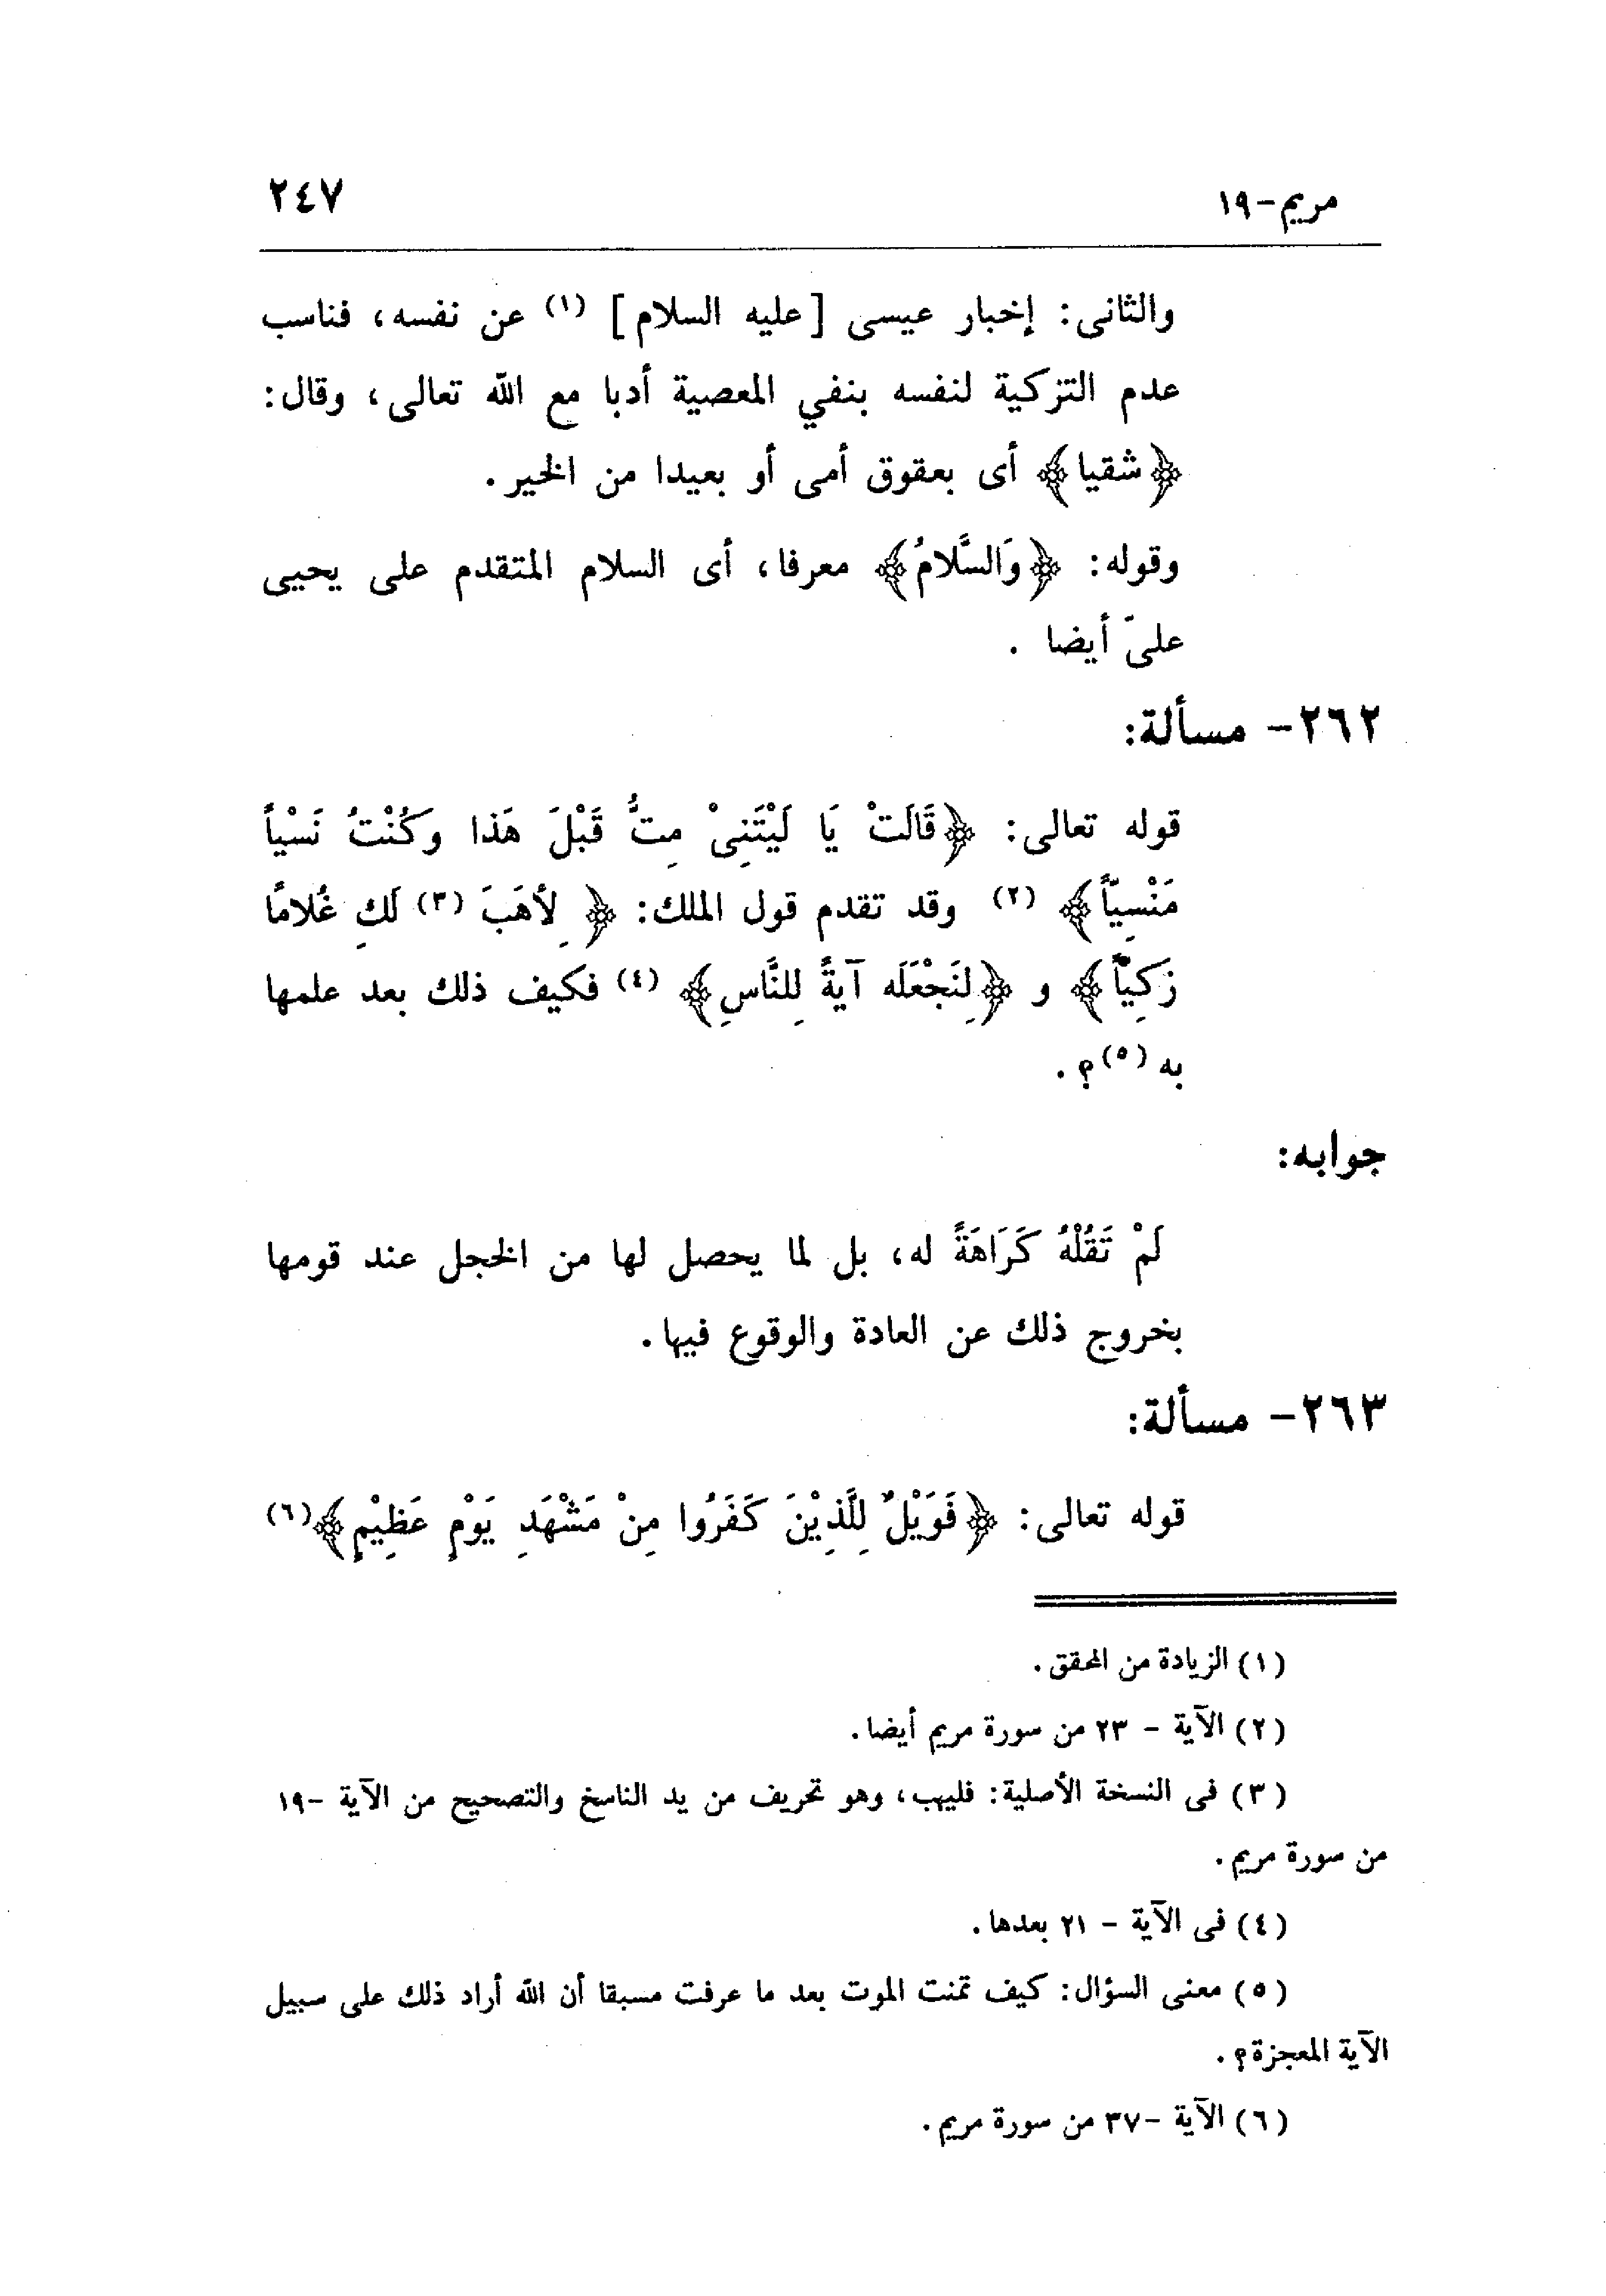 مريم-١٩ ٢٤٧
والثانى: إخبار عيسى [عليه السلام] (١) عن نفسه، فناسب
عدم التزكية لنفسه بنفي المعصية أدبا مع الله تعالى، وقال:
﴿شقيا﴾ أى بعقوق أمى أو بعيدا من الخير.
وقوله: ﴿وَالسَّلامُ﴾ معرفا، أى السلام المتقدم على يحيى
علىّ أيضا .
٢٦٢- مسألة:
قوله تعالى: ﴿قَالَتْ يَا لَيْتَنِىْ مِتُّ قَبْلَ هَذا وَكُنْتُ نَسْياً
مَنْسِيّاً﴾ (٢) وقد تقدم قول الملك: ﴿لِأَهَبَ (٣) لَكِ غُلامًا
زَكِيّاً﴾ و ﴿لِنَجْعَلَه آيةً لِلنَّاسِ﴾ (٤) فكيف ذلك بعد علمها
به (٥)؟.
جوابه:
لَمْ تَقُلْهُ كَرَاهَةً له، بل لما يحصل لها من الخجل عند قومها
بخروج ذلك عن العادة والوقوع فيها.
٢٦٣- مسألة:
قوله تعالى: ﴿فَوَيْلٌ لِلَّذِيْنَ كَفَرُوا مِنْ مَشْهَدِ يَوْمٍ عَظِيْمٍ﴾(٦)
(١) الزيادة من المحقق.
(٢) الآية - ٢٣ من سورة مريم أيضا.
(٣) فى النسخة الأصلية: فليهب، وهو تحريف من يد الناسخ والتصحيح من الآية -١٩
من سورة مريم.
(٤) فى الآية - ٢١ بعدها.
(٥) معنى السؤال: كيف تمنت الموت بعد ما عرفت مسبقا أن الله أراد ذلك على سبيل
الآية المعجزة؟.
(٦) الآية -٣٧ من سورة مريم.